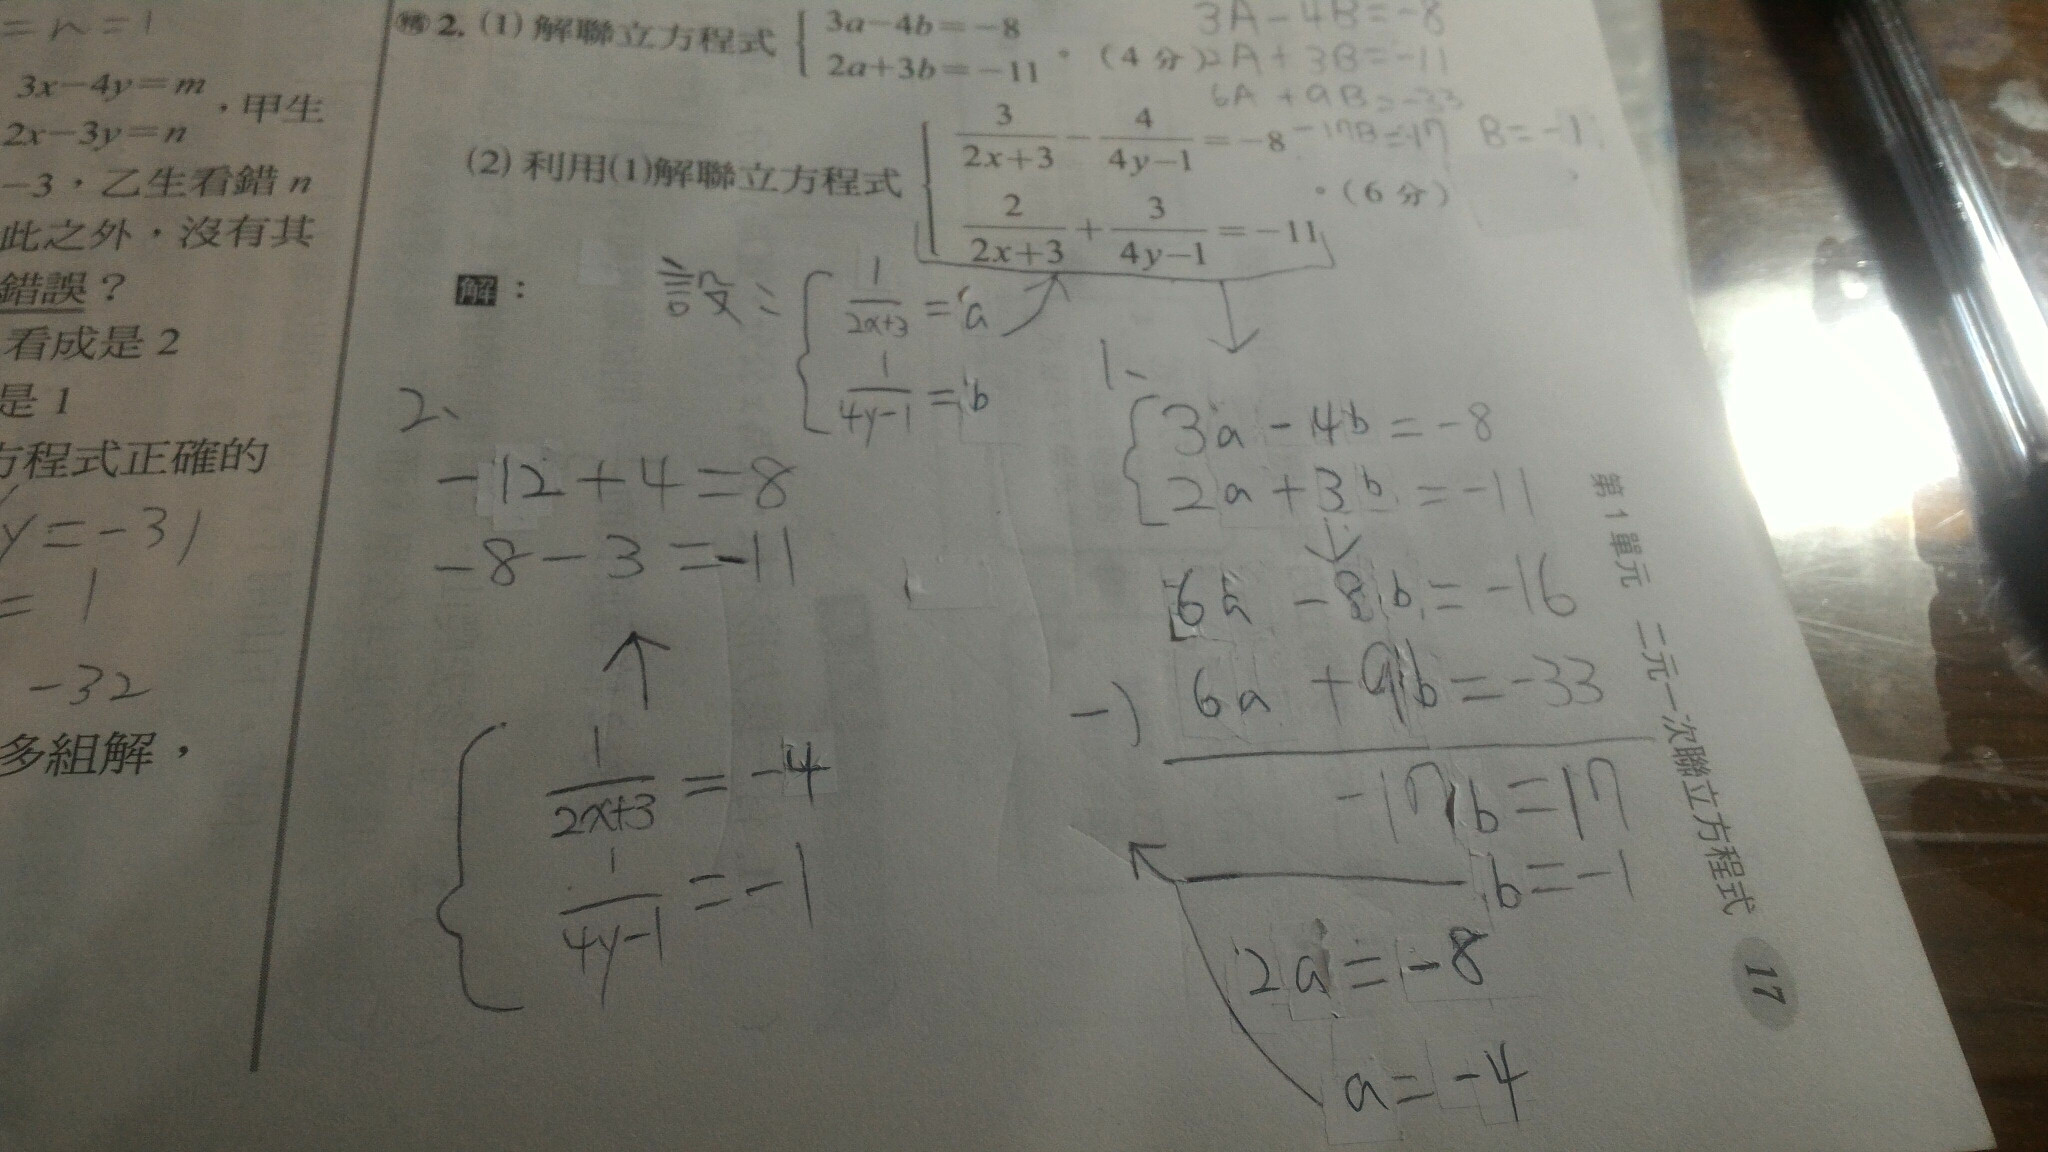 = n = 1
3x−4y=m
，甲生
2x−3y=n
−3，乙生看錯 n
此之外，沒有其
錯誤？
看成是 2
是 1
方程式正確的
y = -31
= 1
-32
多組解，
2. (1) 解聯立方程式
3a−4b=−8
2a+3b=−11
。(4 分)
3A - 4B = -8
2A + 3B = -11
6A + 9B = -33
-17B = 17 B = -1
(2) 利用(1)解聯立方程式
3/(2x+3) − 4/(4y−1) = −8
2/(2x+3) + 3/(4y−1) = −11
。(6 分)
解：
設：
1/(2x+3) = a
1/(4y-1) = b
1、
3a - 4b = -8
2a + 3b = -11
6a - 8b = -16
-) 6a + 9b = -33
-17b = 17
b = -1
2a = -8
a = -4
2、
-12 + 4 = 8
-8 - 3 = -11
1/(2x+3) = -4
1/(4y-1) = -1
第 1 單元 二元一次聯立方程式 17